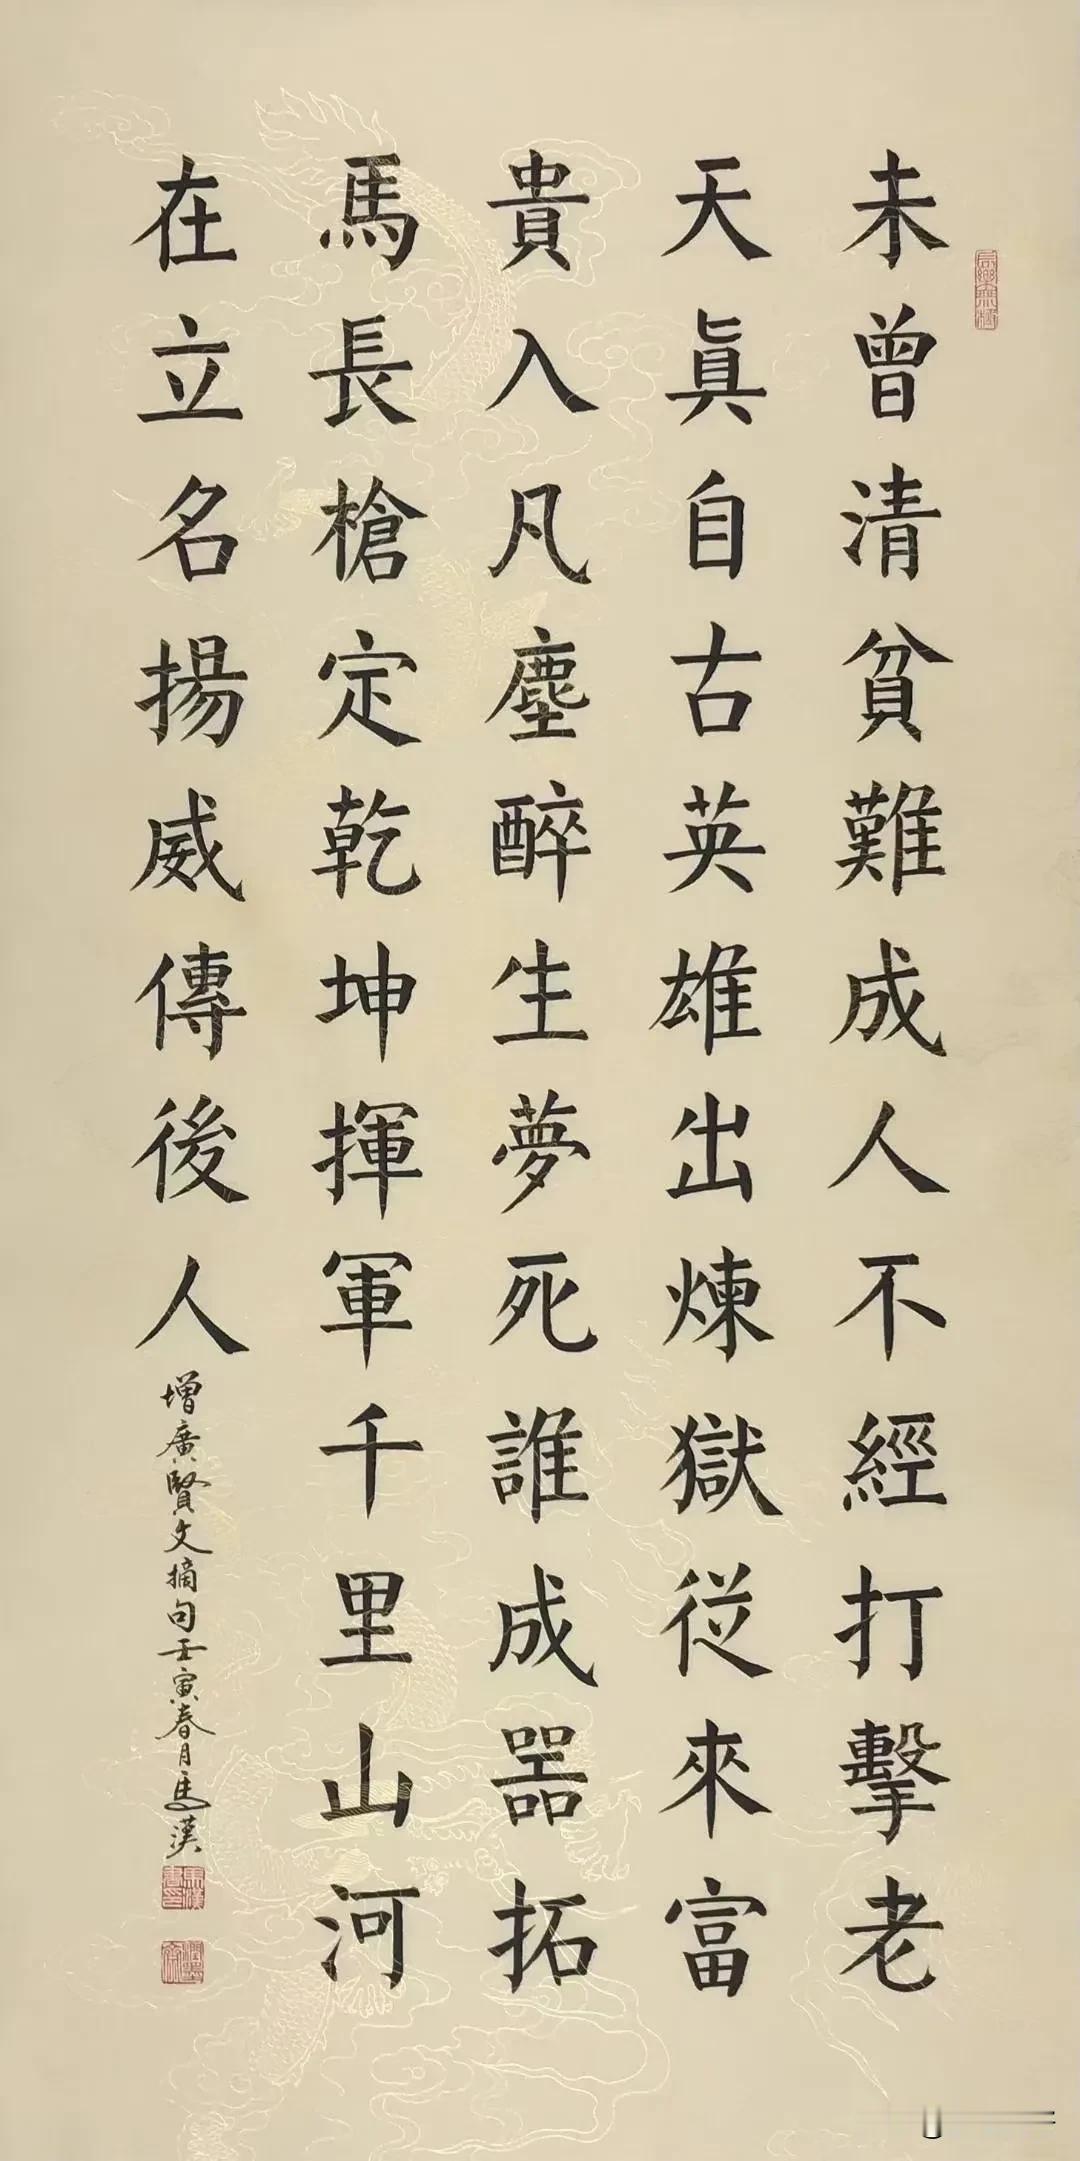 未曾清貧難成人不經打擊老
天眞自古英雄出煉獄從來富
貴入凡塵醉生夢死誰成器拓
馬長槍定乾坤揮軍千里山河
在立名揚威傳後人
增廣賢文摘句壬寅春月馬漢